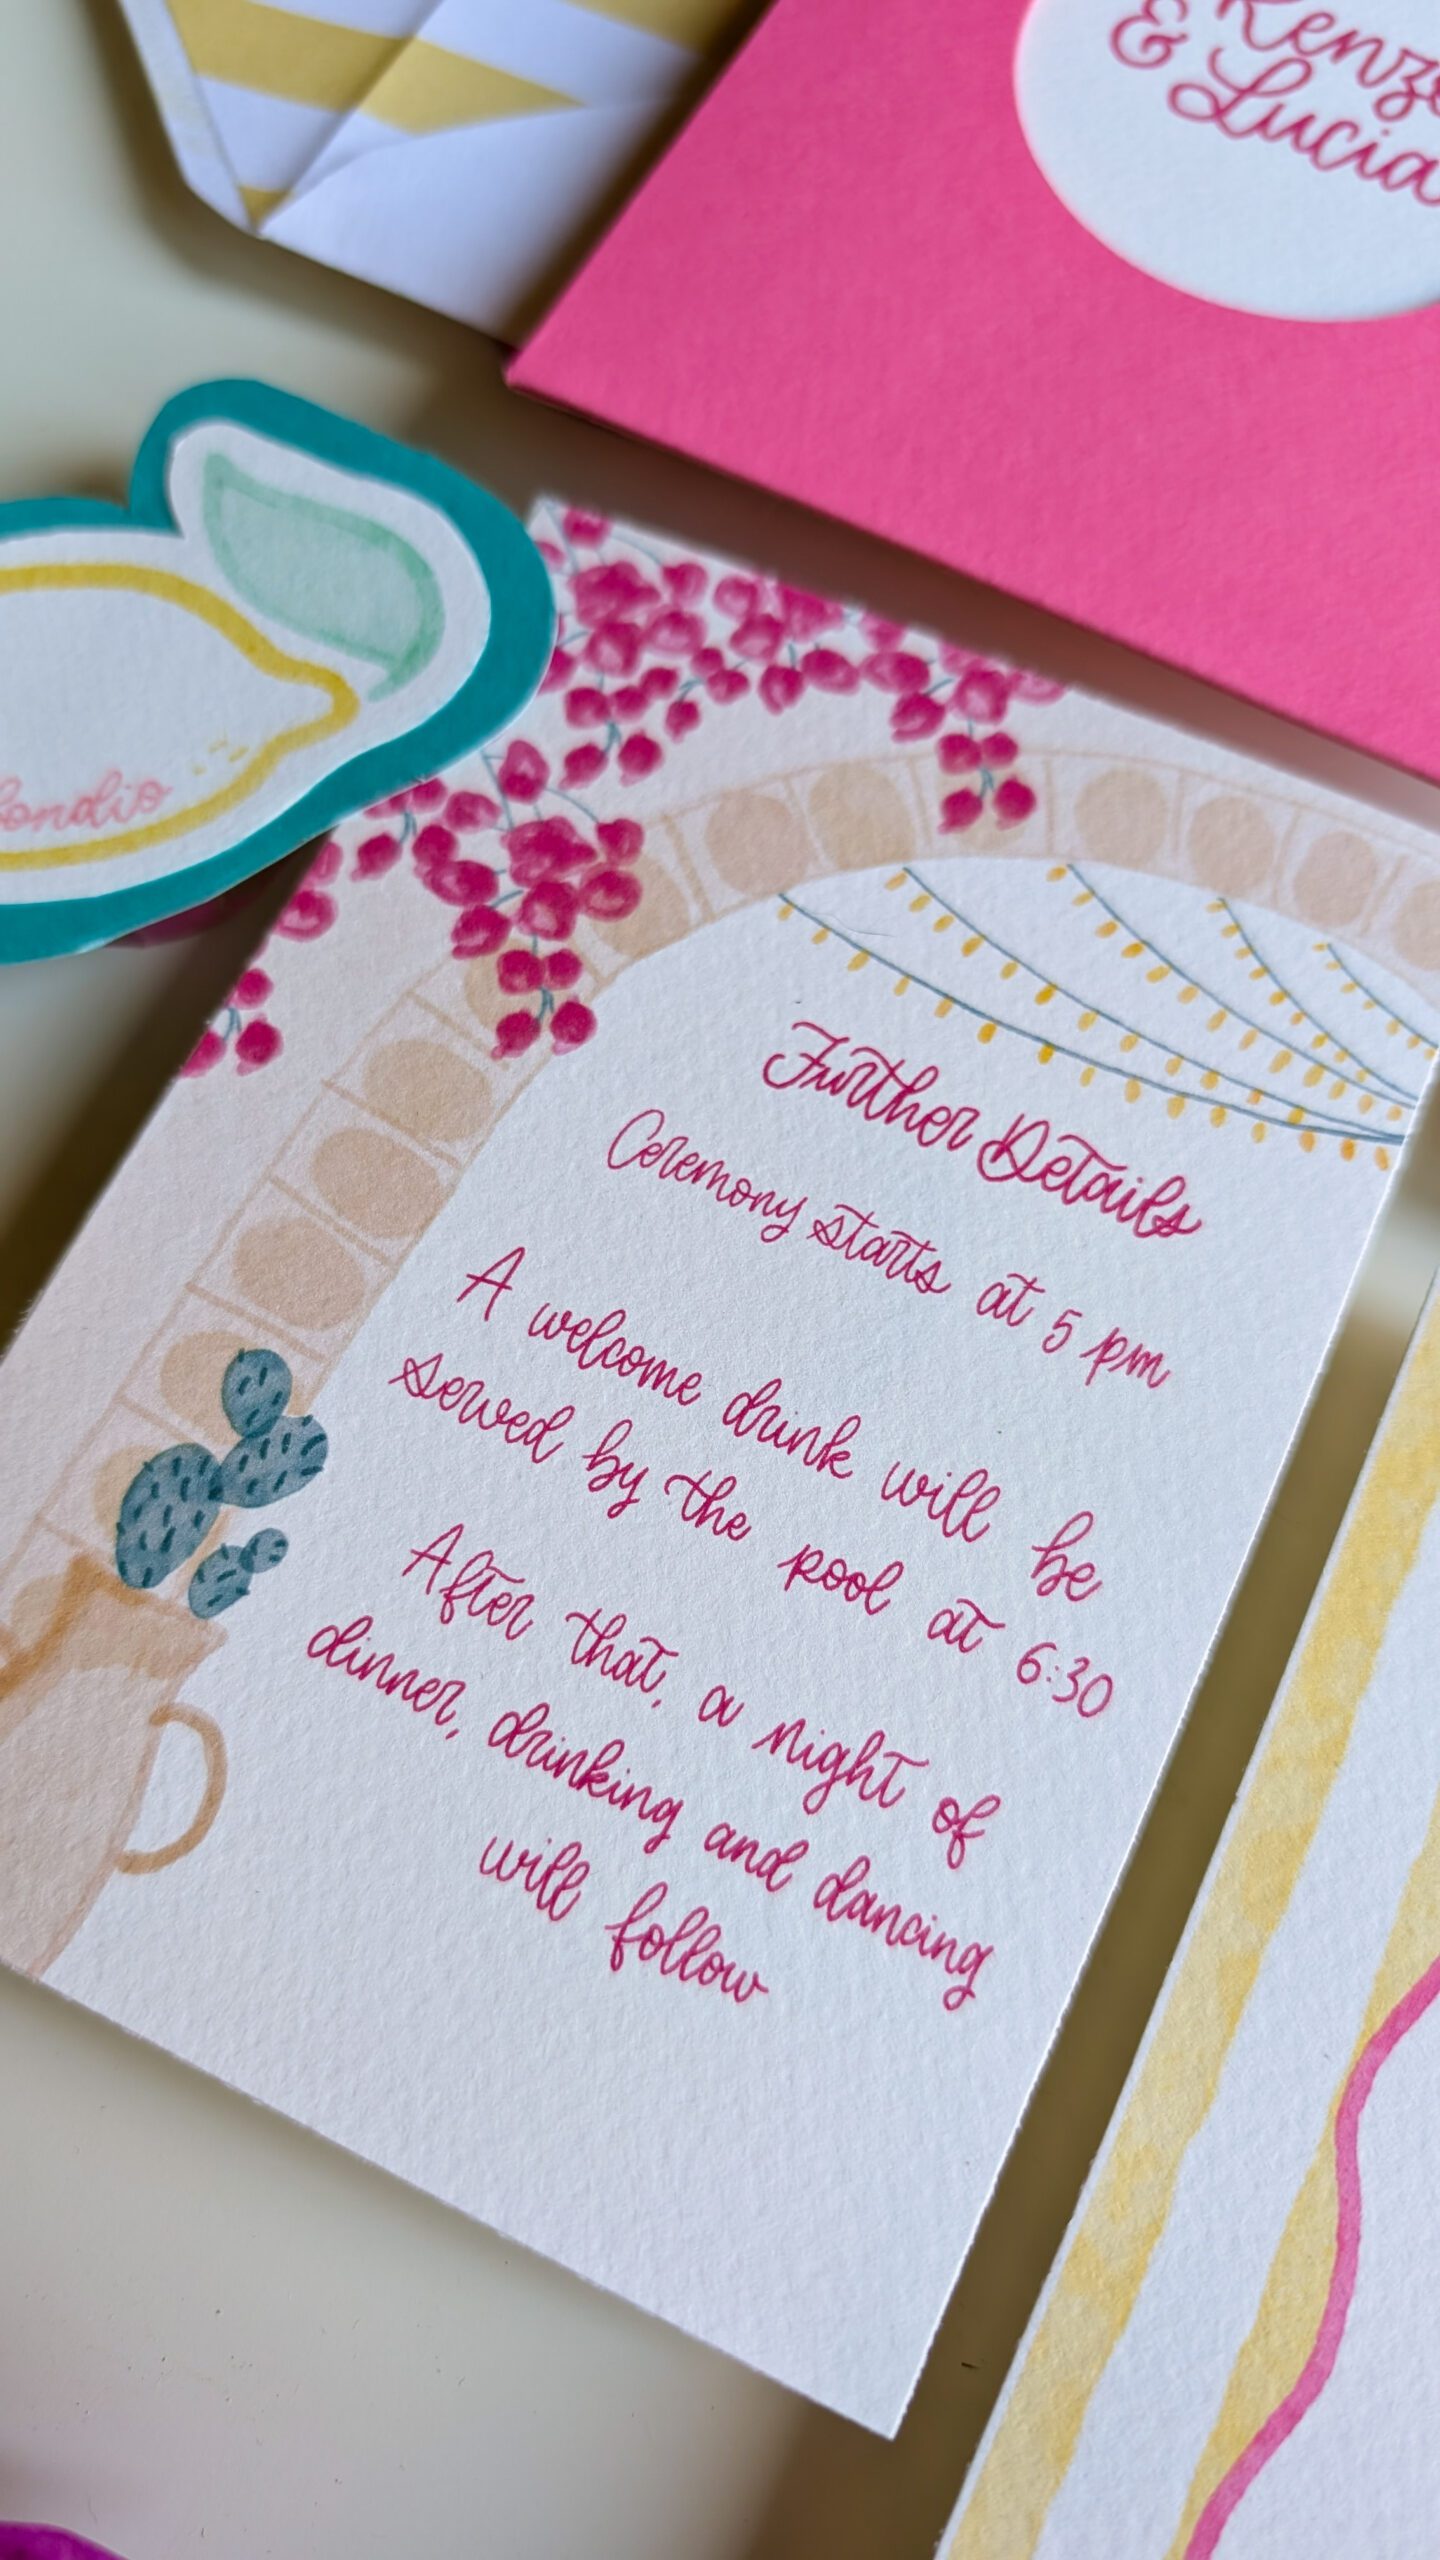 & Lucia
Further Details
Ceremony starts at 5 pm
A welcome drink will be
served by the pool at 6:30
After that, a night of
dinner, drinking and dancing
will follow